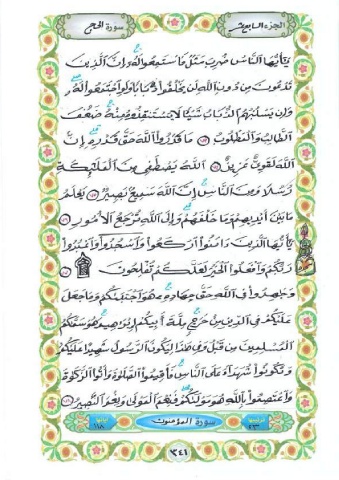 الجزء السابع عشر
سورة الحج
يَٰٓأَيُّهَا ٱلنَّاسُ ضُرِبَ مَثَلٌ فَٱسْتَمِعُوا۟ لَهُۥٓ إِنَّ ٱلَّذِينَ
تَدْعُونَ مِن دُونِ ٱللَّهِ لَن يَخْلُقُوا۟ ذُبَابًا وَلَوِ ٱجْتَمَعُوا۟ لَهُۥ
وَإِن يَسْلُبْهُمُ ٱلذُّبَابُ شَيْـًٔا لَّا يَسْتَنقِذُوهُ مِنْهُ ضَعُفَ
ٱلطَّالِبُ وَٱلْمَطْلُوبُ ٧٣ مَا قَدَرُوا۟ ٱللَّهَ حَقَّ قَدْرِهِۦٓ إِنَّ
ٱللَّهَ لَقَوِىٌّ عَزِيزٌ ٧٤ ٱللَّهُ يَصْطَفِى مِنَ ٱلْمَلَٰٓئِكَةِ
رُسُلًا وَمِنَ ٱلنَّاسِ إِنَّ ٱللَّهَ سَمِيعٌۢ بَصِيرٌ ٧٥ يَعْلَمُ
مَا بَيْنَ أَيْدِيهِمْ وَمَا خَلْفَهُمْ وَإِلَى ٱللَّهِ تُرْجَعُ ٱلْأُمُورُ ٧٦
يَٰٓأَيُّهَا ٱلَّذِينَ ءَامَنُوا۟ ٱرْكَعُوا۟ وَٱسْجُدُوا۟ وَٱعْبُدُوا۟
رَبَّكُمْ وَٱفْعَلُوا۟ ٱلْخَيْرَ لَعَلَّكُمْ تُفْلِحُونَ ٧٧
وَجَٰهِدُوا۟ فِى ٱللَّهِ حَقَّ جِهَادِهِۦ هُوَ ٱجْتَبَىٰكُمْ وَمَا جَعَلَ
عَلَيْكُمْ فِى ٱلدِّينِ مِنْ حَرَجٍ مِّلَّةَ أَبِيكُمْ إِبْرَٰهِيمَ هُوَ سَمَّىٰكُمُ
ٱلْمُسْلِمِينَ مِن قَبْلُ وَفِى هَٰذَا لِيَكُونَ ٱلرَّسُولُ شَهِيدًا عَلَيْكُمْ
وَتَكُونُوا۟ شُهَدَآءَ عَلَى ٱلنَّاسِ فَأَقِيمُوا۟ ٱلصَّلَوٰةَ وَءَاتُوا۟ ٱلزَّكَوٰةَ
وَٱعْتَصِمُوا۟ بِٱللَّهِ هُوَ مَوْلَىٰكُمْ فَنِعْمَ ٱلْمَوْلَىٰ وَنِعْمَ ٱلنَّصِيرُ ٧٨
سورة المؤمنون
٣٤١